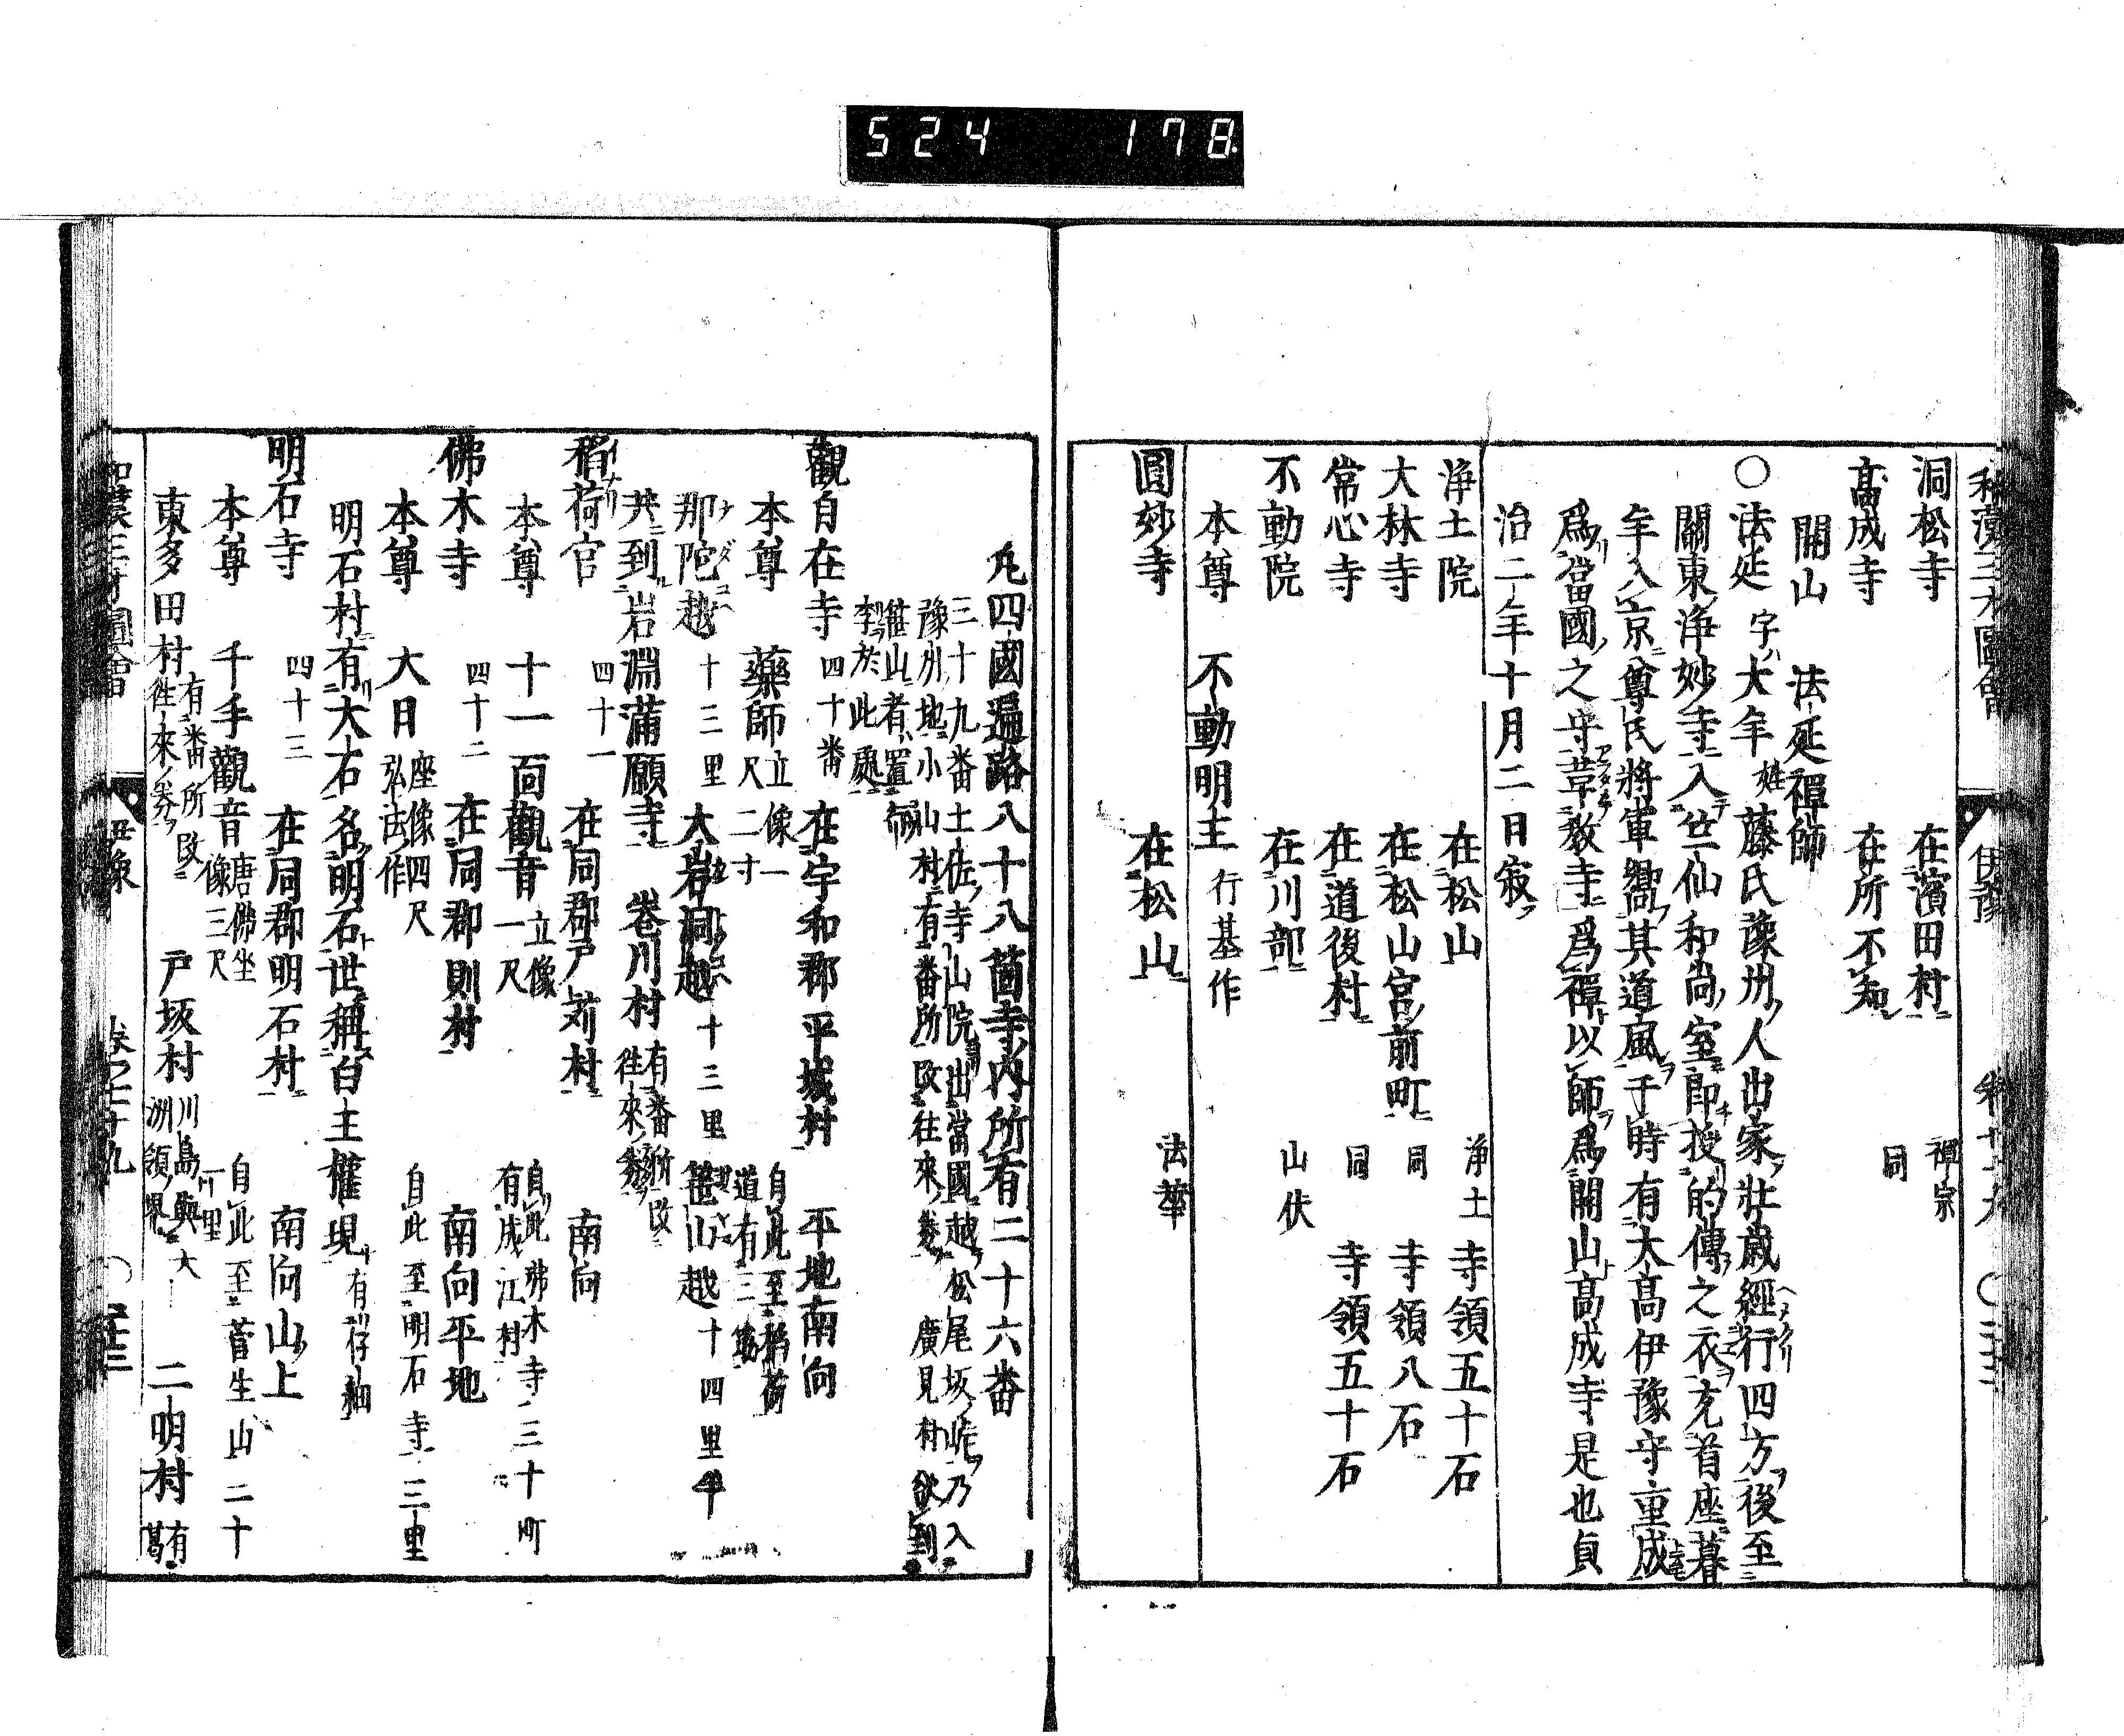 524 178
洞松寺 在濱田村 禪宗
高成寺 在所不知 同
開山 法延禪師
〇法延 字ハ大年 姓藤氏豫州ノ人出家壯歳經行四方後至
關東淨妙寺入竺仙和尚室即授的傳之衣充首座暮
年入京尊氏將軍嚮其道風于時有大高伊豫守重成
爲當國之守革教寺爲禪以師爲開山高成寺是也貞
治二年十月二日寂
淨土院 在松山 淨土 寺領五十石
大林寺 在松山宮前町 同 寺領八石
常心寺 在道後村 同 寺領五十石
不動院 在川部 山伏
本尊 不動明王 行基作
圓妙寺 在松山 法華
凡四國遍路八十八箇寺內所有二十六番
三十九番土佐寺山院出當國越松尾坂乃入
豫州地小山村有番所改往來 廣見村欲到
笹山者置
於此處
觀自在寺 四十番 在宇和郡平城村 平地南向
本尊 藥師 立像一尺二寸 自此至稻荷道有三
那陀越 十三里 大岩洞越 十三里 笹山越 十四里半
共到岩淵滿願寺 巻川村 有番所改往來
稻荷宮 四十一 在同郡戸苅村 南向
本尊 十一面觀音 立像一尺 自此佛木寺三十町有成江村
佛木寺 四十二 在同郡則村 南向平地
本尊 大日 座像四尺弘法作 自此至明石寺三里
明石村有大石名明石世稱白主權現有存細
明石寺 四十三 在同郡明石村 南向山上
本尊 千手觀音 唐佛坐像三尺 自此至菅生山二十一里
東多田村 有番所改往來 戸坂村 川島與大洲領界 二明村 有